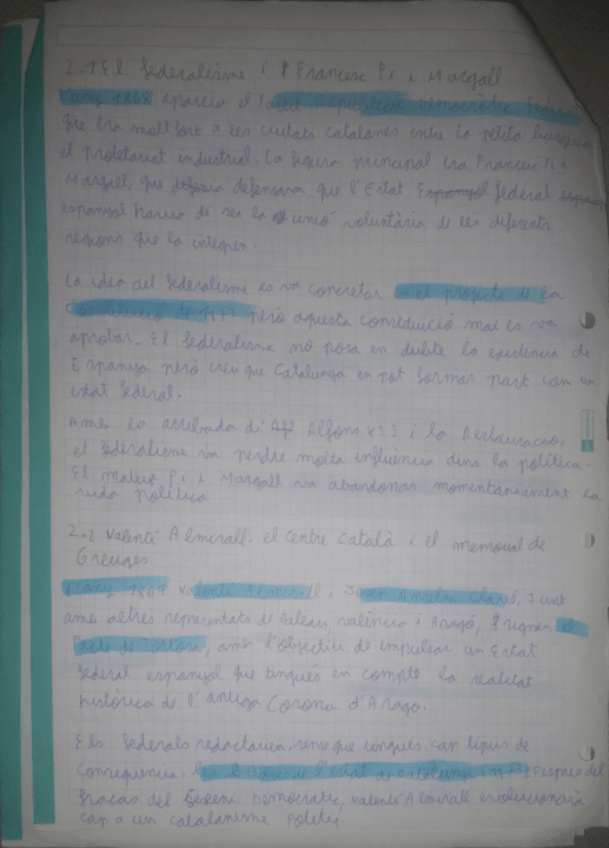 2.1 El federalisme i Francesc Pi i Margall
L'any 1868 apareix el Partit Republicà Democràtic Federal
que era molt fort a les ciutats catalanes entre la petita burgesia
el proletariat industrial. La figura principal era Francesc Pi i
Margall, que defensava que l'Estat Espanyol federal
espanyol havia de ser la unió voluntària de les diferents
regions que la integren.
La idea del federalisme es va concretar en el projecte de la
Constitució de però aquesta constitució mai es va
aprobar. El federalisme no posa en dubte la existencia de
Espanya però creu que Catalunya en pot formar part com un
estat federal.
Amb la arribada d'Alf Alfons XII i la Restauració,
el federalisme va perdre molta influència dins la política.
El mateix Pi i Margall va abandonar momentaniament la
vida política
2.2 Valentí Almirall. el centre Català i el memorial de
Greuges
L'any 1869 Valentí Almirall i Josep Anselm Clavé, junt
amb altres representats de Balears, València i Aragó, signen el
Pacte de Tortosa, amb l'objectiu de impulsar un Estat
federal espanyol que tingués en compte la realitat
històrica de l'antiga Corona d'Aragó.
Els federals redactarien, sense que tingués cap tipus de
conseqüencia, les Bases de l'estat de Catalunya Despres del
fracas del Sexeni Democratic, Valentí Almirall evolucionarà
cap a un catalanisme Politic